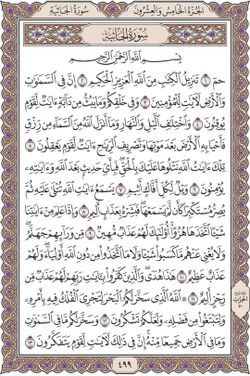 الجزء الخامس والعشرون
سورة الجاثية
سورة الجاثية
بسم الله الرحمن الرحيم
حم ١ تنزيل الكتب من الله العزيز الحكيم ٢ إن في السموت
والأرض لءايت للمؤمنين ٣ وفي خلقكم وما يبث من دابة ءايت لقوم
يوقنون ٤ واختلف اليل والنهار وما أنزل الله من السماء من رزق
فأحيا به الأرض بعد موتها وتصريف الريح ءايت لقوم يعقلون ٥
تلك ءايت الله نتلوها عليك بالحق فبأي حديث بعد الله وءايته
يؤمنون ٦ ويل لكل أفاك أثيم ٧ يسمع ءايت الله تتلى عليه ثم
يصر مستكبرا كأن لم يسمعها فبشره بعذاب أليم ٨ وإذا علم من ءايتنا
شيئا اتخذها هزوا أولئك لهم عذاب مهين ٩ من ورائهم جهنم
ولا يغني عنهم ما كسبوا شيئا ولا ما اتخذوا من دون الله أولياء ولهم
عذاب عظيم ١٠ هذا هدى والذين كفروا بءايت ربهم لهم عذاب من
رجز أليم ١١ الله الذي سخر لكم البحر لتجري الفلك فيه بأمره
ولتبتغوا من فضله ولعلكم تشكرون ١٢ وسخر لكم ما في السموت
وما في الأرض جميعا منه إن في ذلك لءايت لقوم يتفكرون ١٣
٤٩٩